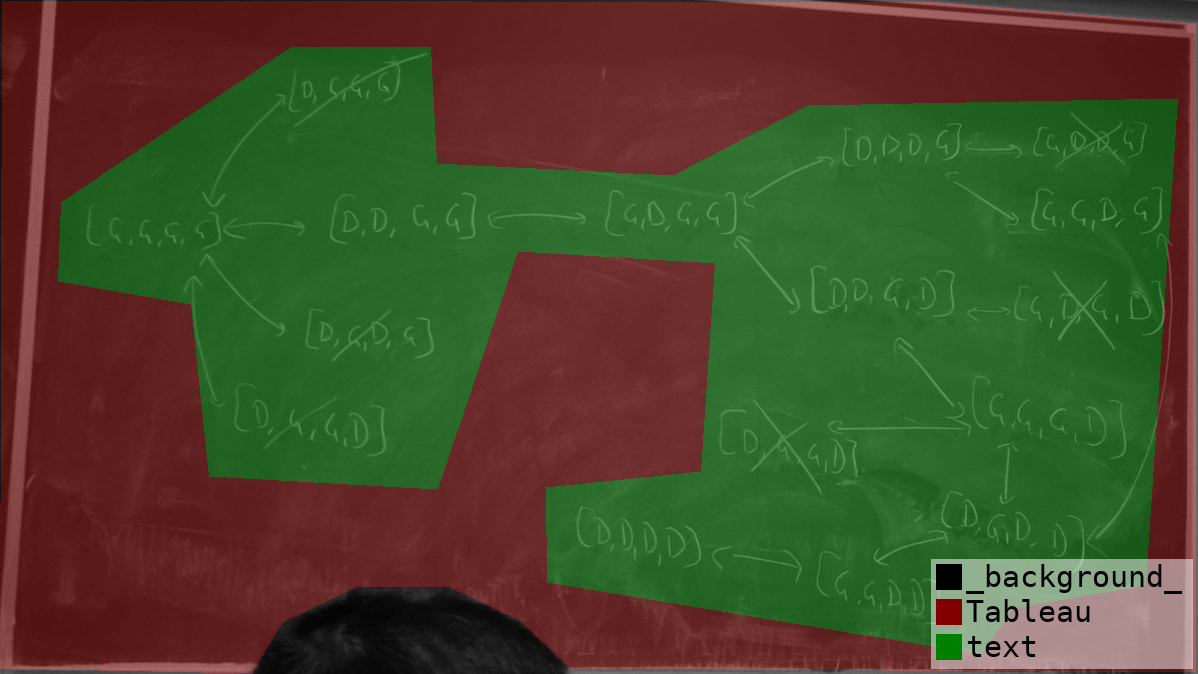 [D, G, G, G]
[D, D, D, G]
[G, D, D, G]
[G, G, G, G]
[D, D, G, G]
[G, D, G, G]
[G, G, D, G]
[D, D, G, D]
[G, D, G, D]
[D, G, D, G]
[D, G, G, D]
[G, G, G, D]
[D, G, G, D]
[D, G, D, D]
[D, D, D, D]
[G, G, D, D]
_background_
Tableau
text